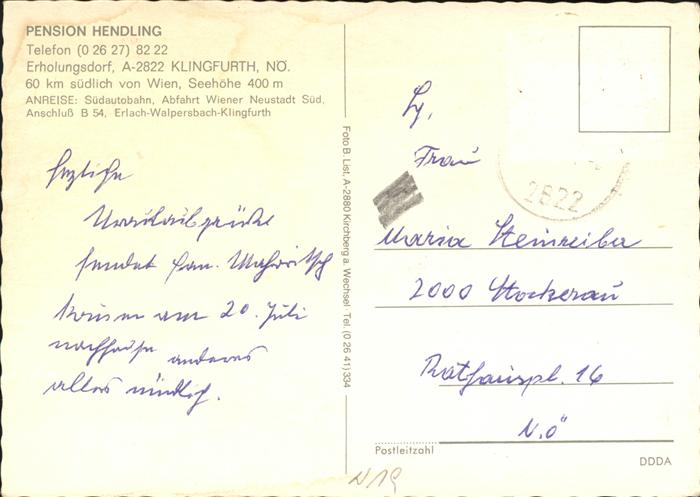 PENSION HENDLING
Telefon (0 26 27) 82 22
Erholungsdorf, A-2822 KLINGFURTH, NÖ.
60 km südlich von Wien, Seehöhe 400 m
ANREISE: Südautobahn, Abfahrt Wiener Neustadt Süd,
Anschluß B 54, Erlach-Walpersbach-Klingfurth
Herzliche
Urlaubsgrüße
sendet Fam.
am 20. Juli
nachhause anderes
alles mündlich.
Foto B. List, A-2880 Kirchberg a. Wechsel · Tel. (0 26 41) 334
2822
Frau
Maria
2000 Stockerau
Rathauspl. 16
N.Ö
Postleitzahl
DDDA